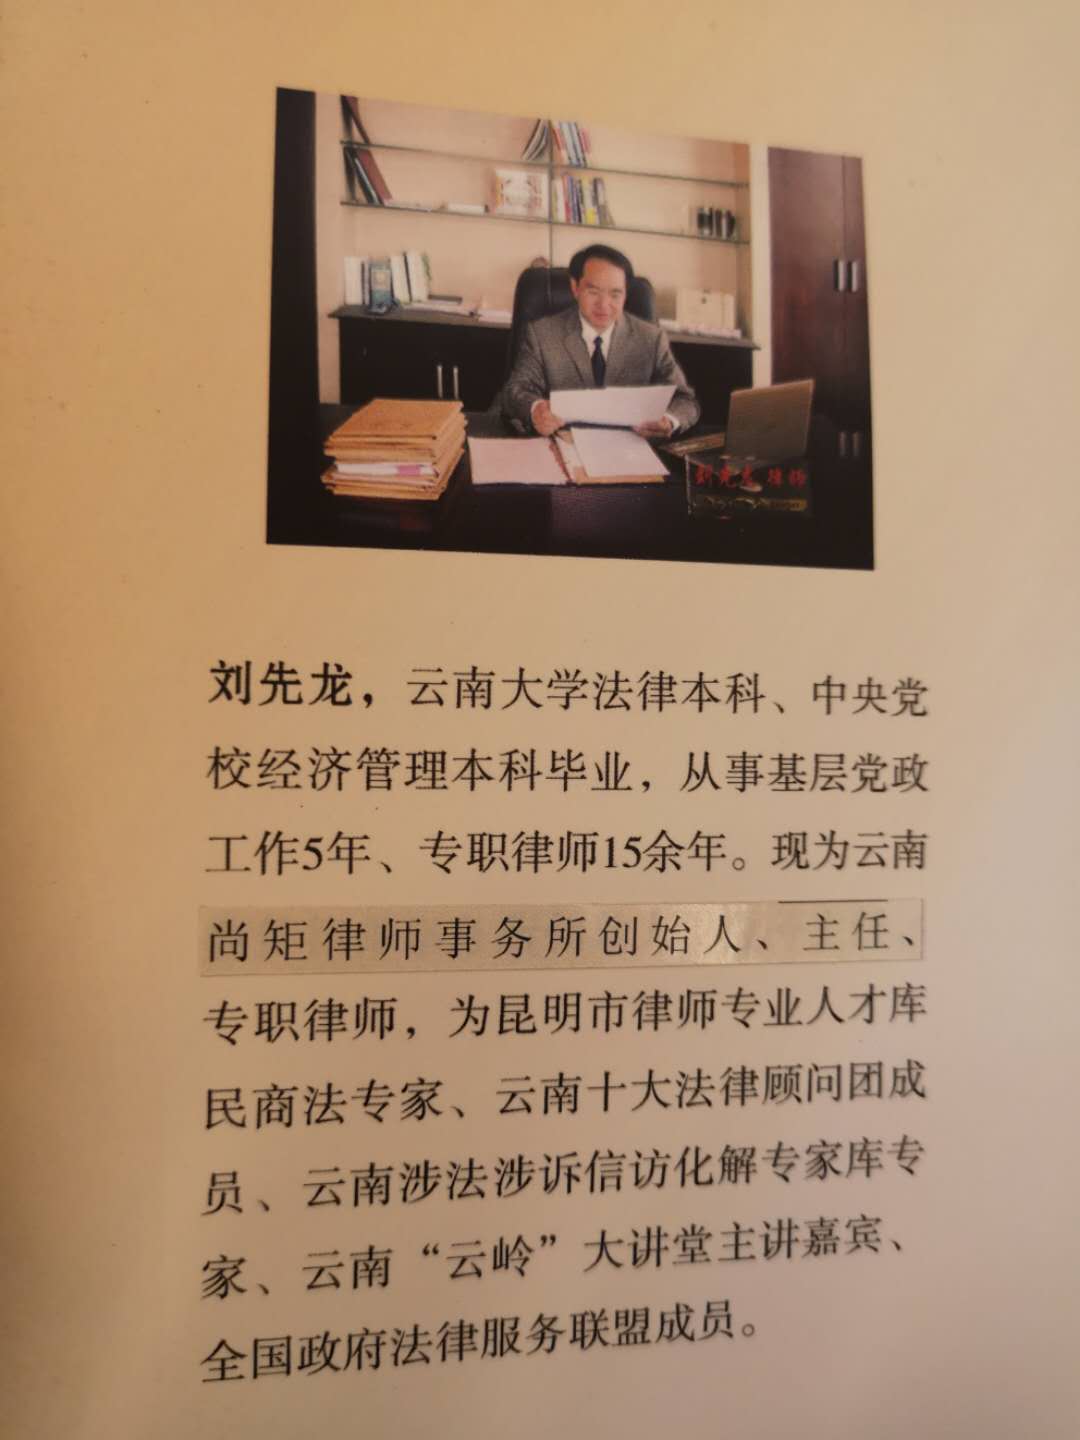 刘先龙 律师
刘先龙，云南大学法律本科、中央党
校经济管理本科毕业，从事基层党政
工作5年、专职律师15余年。现为云南
尚矩律师事务所创始人、主任、
专职律师，为昆明市律师专业人才库
民商法专家、云南十大法律顾问团成
员、云南涉法涉诉信访化解专家库专
家、云南“云岭”大讲堂主讲嘉宾、
全国政府法律服务联盟成员。